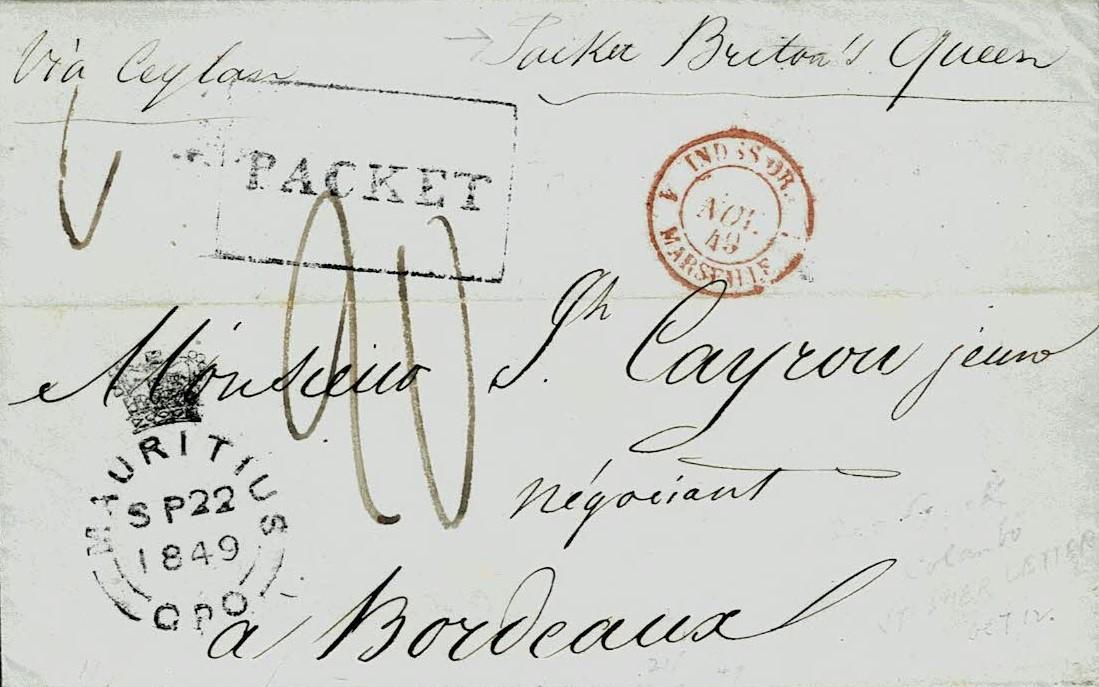 Via Ceylan
Packet Briton's Queen
PACKET
INDES OR.
NOV.
49
MARSEILLE
90
Monsieur Jh. Cayrou jeune
négociant
à Bordeaux
MAURITIUS
SP22
1849
GPO
Colombo
SHIP LETTER
OCT 12.